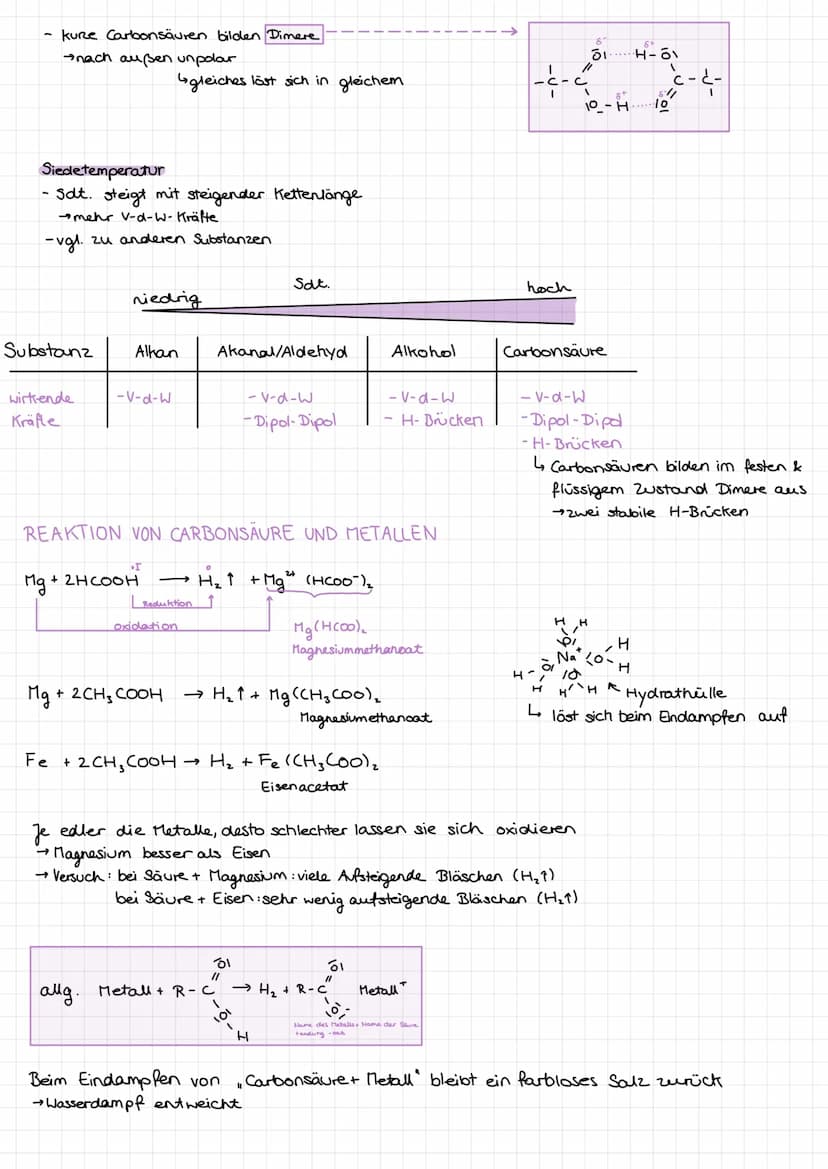 - kurze Carbonsäuren bilden Dimere
→nach außen unpolar
↳gleiches löst sich in gleichem
δ- δ+
Ō|·····H-Ō\
-C-C C-C-
δ+ δ-
|O-H·····|O
Siedetemperatur
- Sdt. steigt mit steigender Kettenlänge
→mehr V-d-W-Kräfte
-vgl. zu anderen Substanzen
Sdt.
niedrig hoch
Substanz Alkan Akanal/Aldehyd Alkohol Carbonsäure
wirkende -V-d-W - V-d-W - V-d-W - V-d-W
Kräfte -Dipol-Dipol - H-Brücken -Dipol-Dipol
-H-Brücken
↳ Carbonsäuren bilden im festen &
flüssigem Zustand Dimere aus
→zwei stabile H-Brücken
REAKTION VON CARBONSÄURE UND METALLEN
+I 0
Mg + 2HCOOH → H₂↑ + Mg²⁺ (HCOO⁻)₂
Reduktion
oxidation
Mg(HCO)₂
Magnesiummethanoat
H H
|O| H
Na⁺ O
H-O H
H |O H
H H
Hydrathülle
↳ löst sich beim Eindampfen auf
Mg + 2CH₃COOH → H₂↑ + Mg(CH₃COO)₂
Magnesiumethanoat
Fe + 2CH₃COOH → H₂ + Fe(CH₃COO)₂
Eisenacetat
Je edler die Metalle, desto schlechter lassen sie sich oxidieren
→ Magnesium besser als Eisen
→ Versuch: bei Säure + Magnesium: viele Aufsteigende Bläschen (H₂↑)
bei Säure + Eisen: sehr wenig aufsteigende Bläschen (H₂↑)
Ō| Ō|
allg. Metall + R-C → H₂ + R-C Metall⁺
|O| |O|⁻
H
Name des Metalls + Name der Säure
+ endung -oat
Beim Eindampfen von „Carbonsäure + Metall" bleibt ein farbloses Salz zurück
→Wasserdampf entweicht